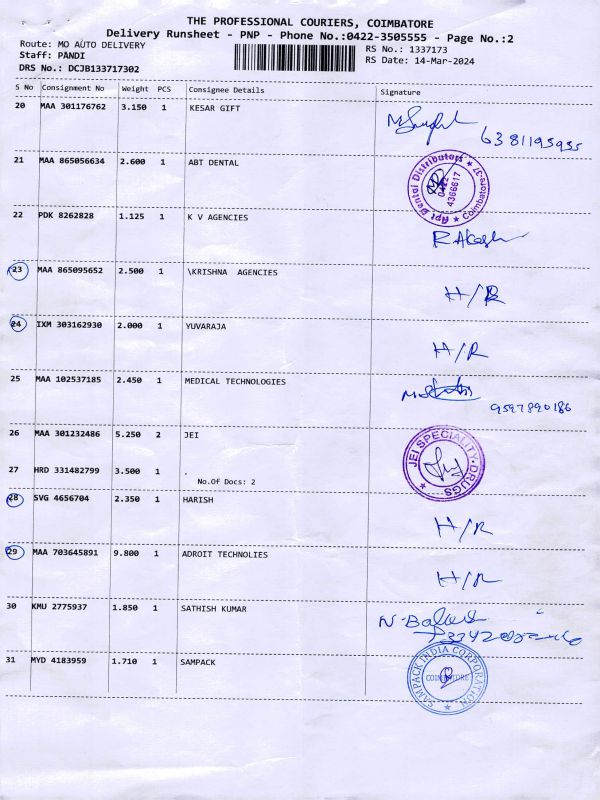 THE PROFESSIONAL COURIERS, COIMBATORE
Delivery Runsheet - PNP - Phone No.:0422-3505555 - Page No.:2
Route: MO AUTO DELIVERY
RS No.: 1337173
Staff: PANDI
RS Date: 14-Mar-2024
DRS No.: DCJB133717302
S No Consignment No Weight PCS Consignee Details Signature
20 MAA 301176762 3.150 1 KESAR GIFT
6381195935
21 MAA 865056634 2.600 1 ABT DENTAL
Apt Dental Distributors * Coimbatore-37 *
0422
4366617
22 PDK 8262828 1.125 1 K V AGENCIES
RAkash
23 MAA 865095652 2.500 1 \KRISHNA AGENCIES
H/R
24 IXM 303162930 2.000 1 YUVARAJA
H/R
25 MAA 102537185 2.450 1 MEDICAL TECHNOLOGIES
9597890186
26 MAA 301232486 5.250 2 JEI
JEI SPECIALITY DRUGS
27 HRD 331482799 3.500 1 .
No.Of Docs: 2
28 SVG 4656704 2.350 1 HARISH
H/R
29 MAA 703645891 9.800 1 ADROIT TECHNOLIES
H/R
30 KMU 2775937 1.850 1 SATHISH KUMAR
31 MYD 4183959 1.710 1 SAMPACK
SAMPACK INDIA CORPORATION
COIMBATORE